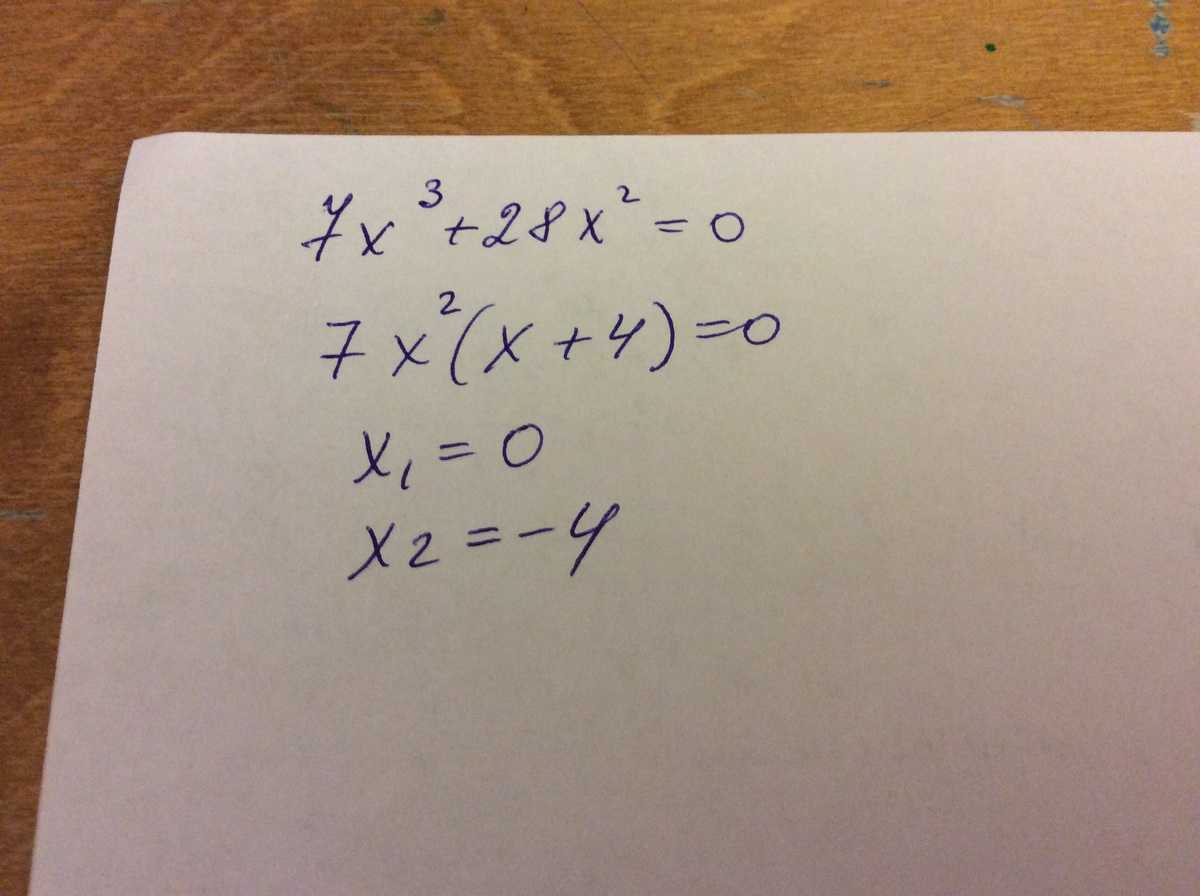 7x³+28x²=0
7x²(x+4)=0
x₁=0
x₂=-4